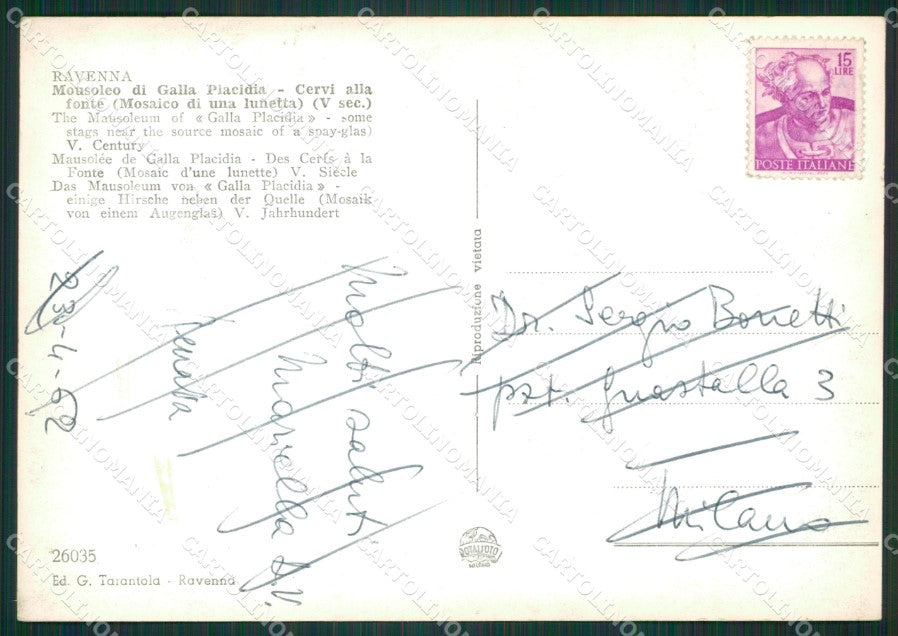 RAVENNA
Mousoleo di Galla Placidia - Cervi alla
fonte (Mosaico di una lunetta) (V sec.)
The Mausoleum of « Galla Placidia » - some
stags near the source mosaic of a spay-glas)
V. Century
Mausolée de Galla Placidia - Des Cerfs à la
Fonte (Mosaic d'une lunette) V. Siècle
Das Mausoleum von « Galla Placidia » -
einige Hirsche neben der Quelle (Mosaik
von einem Augenglas) V. Jahrhundert
15
LIRE
POSTE ITALIANE
23-4-62
Molti saluti
Mariella
Riproduzione vietata
Dr. Sergio Bonetti
pzt. Guastalla 3
Milano
26035
Ed. G. Tarantola - Ravenna
ROTALFOTO
MILANO
CARTOLINOMANIA